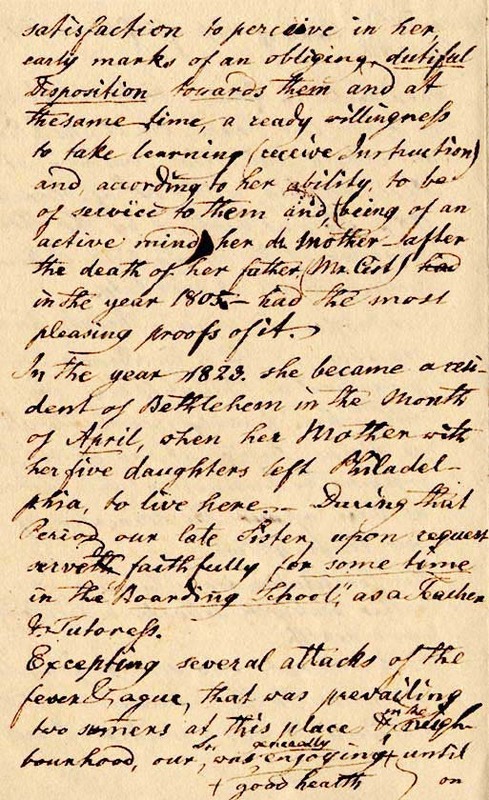 satisfaction to perceive in her,
early marks of an obliging, dutiful
Disposition towards them and at
the same time, a ready willingness
to take learning (receive Instruction)
and, according to her ability, to be
of service to them and, (being of an
active mind) her dr. Mother - after
the death of her father, (Mr. Cist) had
in the year 1805 - had the most
pleasing proofs of it.
In the year 1823. she became a resi-
dent of Bethlehem in the Month
of April, when her Mother with
her five daughters left Philadel-
phia, to live here. - During that
Period, our late Sister, upon request
serveth faithfully for some time
in the "Boarding School," as a Teacher
& Tutoress.
Excepting several attacks of the
fever & ague, that was prevailing
two sumers at this place & in the neigh-
bourhood, our Sr. was generally enjoying + until
+ good health on